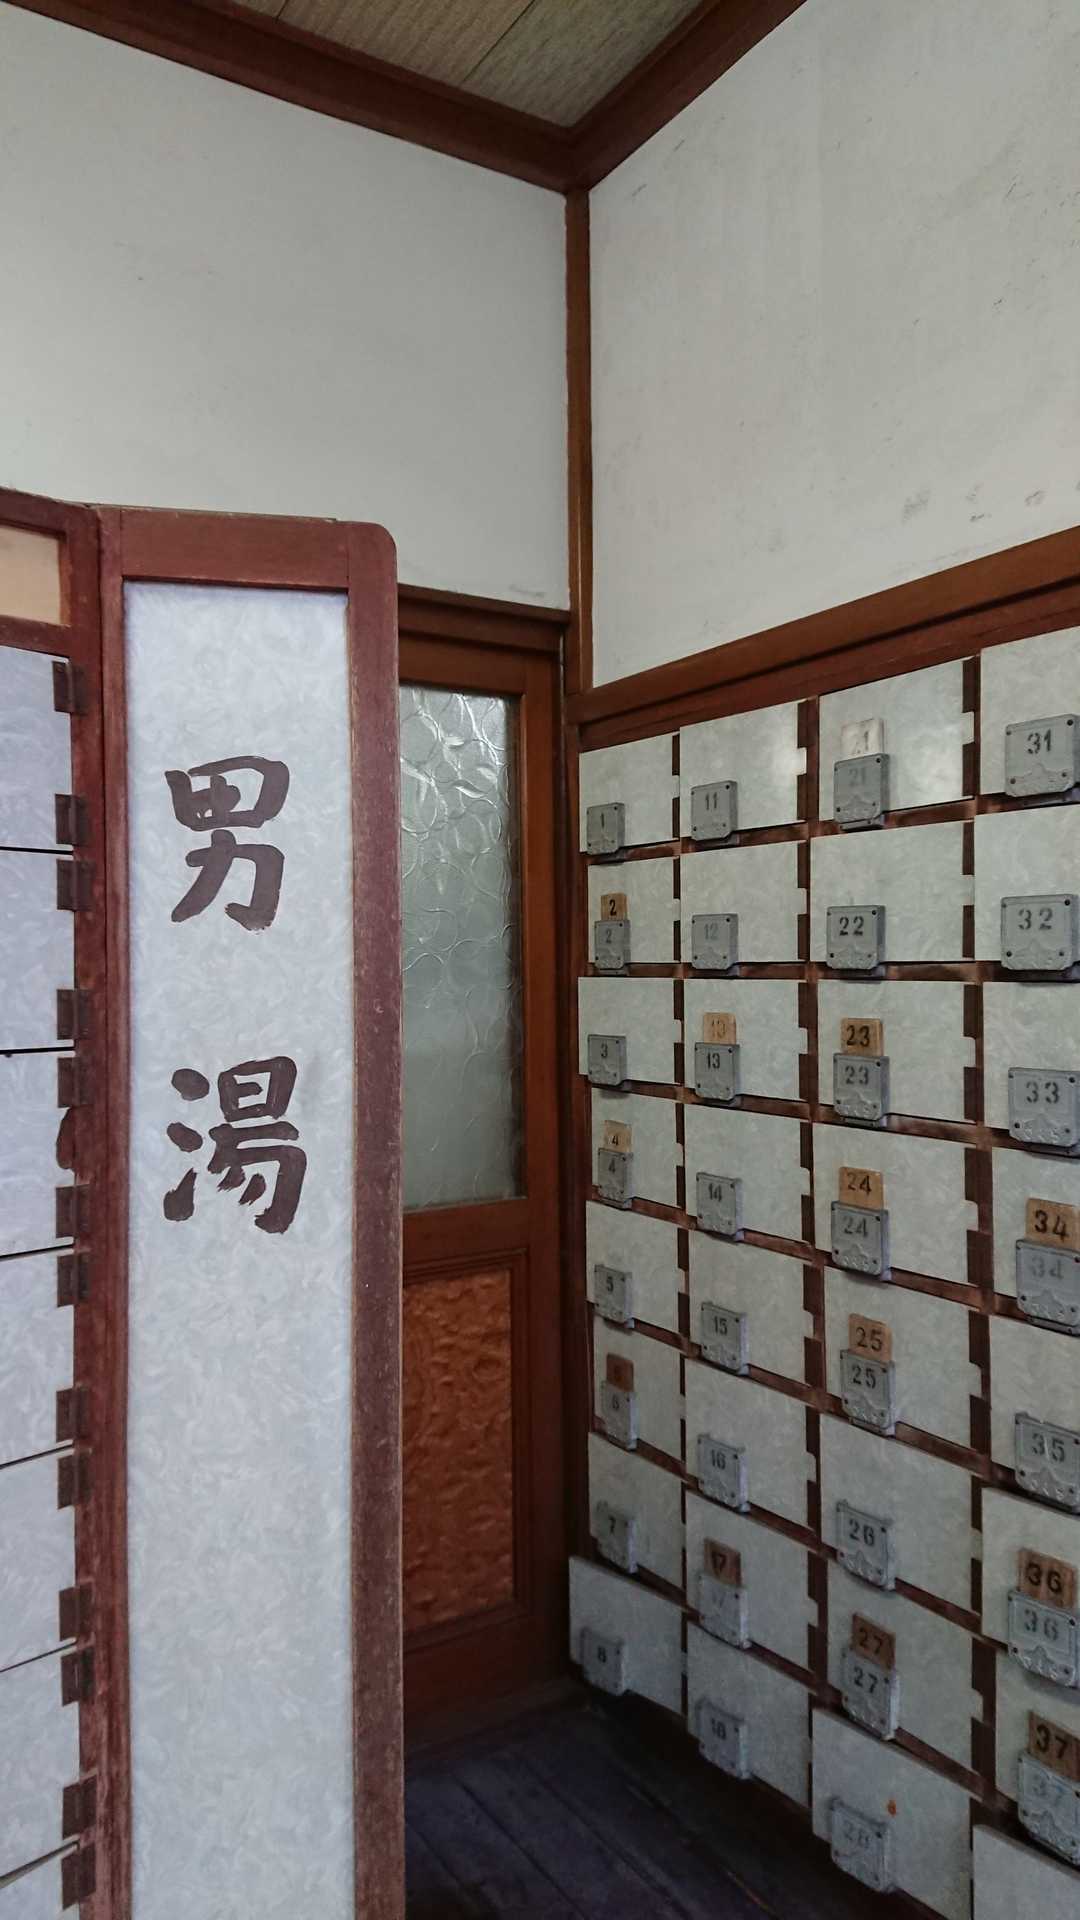 男湯
1
11
21
21
31
2
2
12
22
32
3
13
13
23
23
33
4
4
14
24
24
34
34
5
15
25
25
35
6
6
16
26
36
36
7
17
17
27
27
37
37
8
18
28